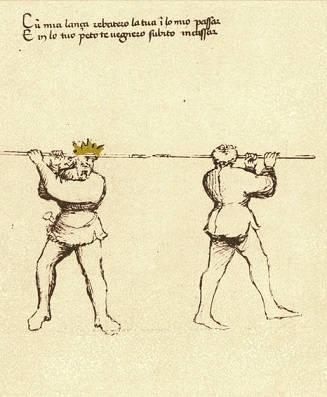 Cū mia lança rebatero la tua ī lo mio passar
E in lo tuo peto te vegniro subito incassar